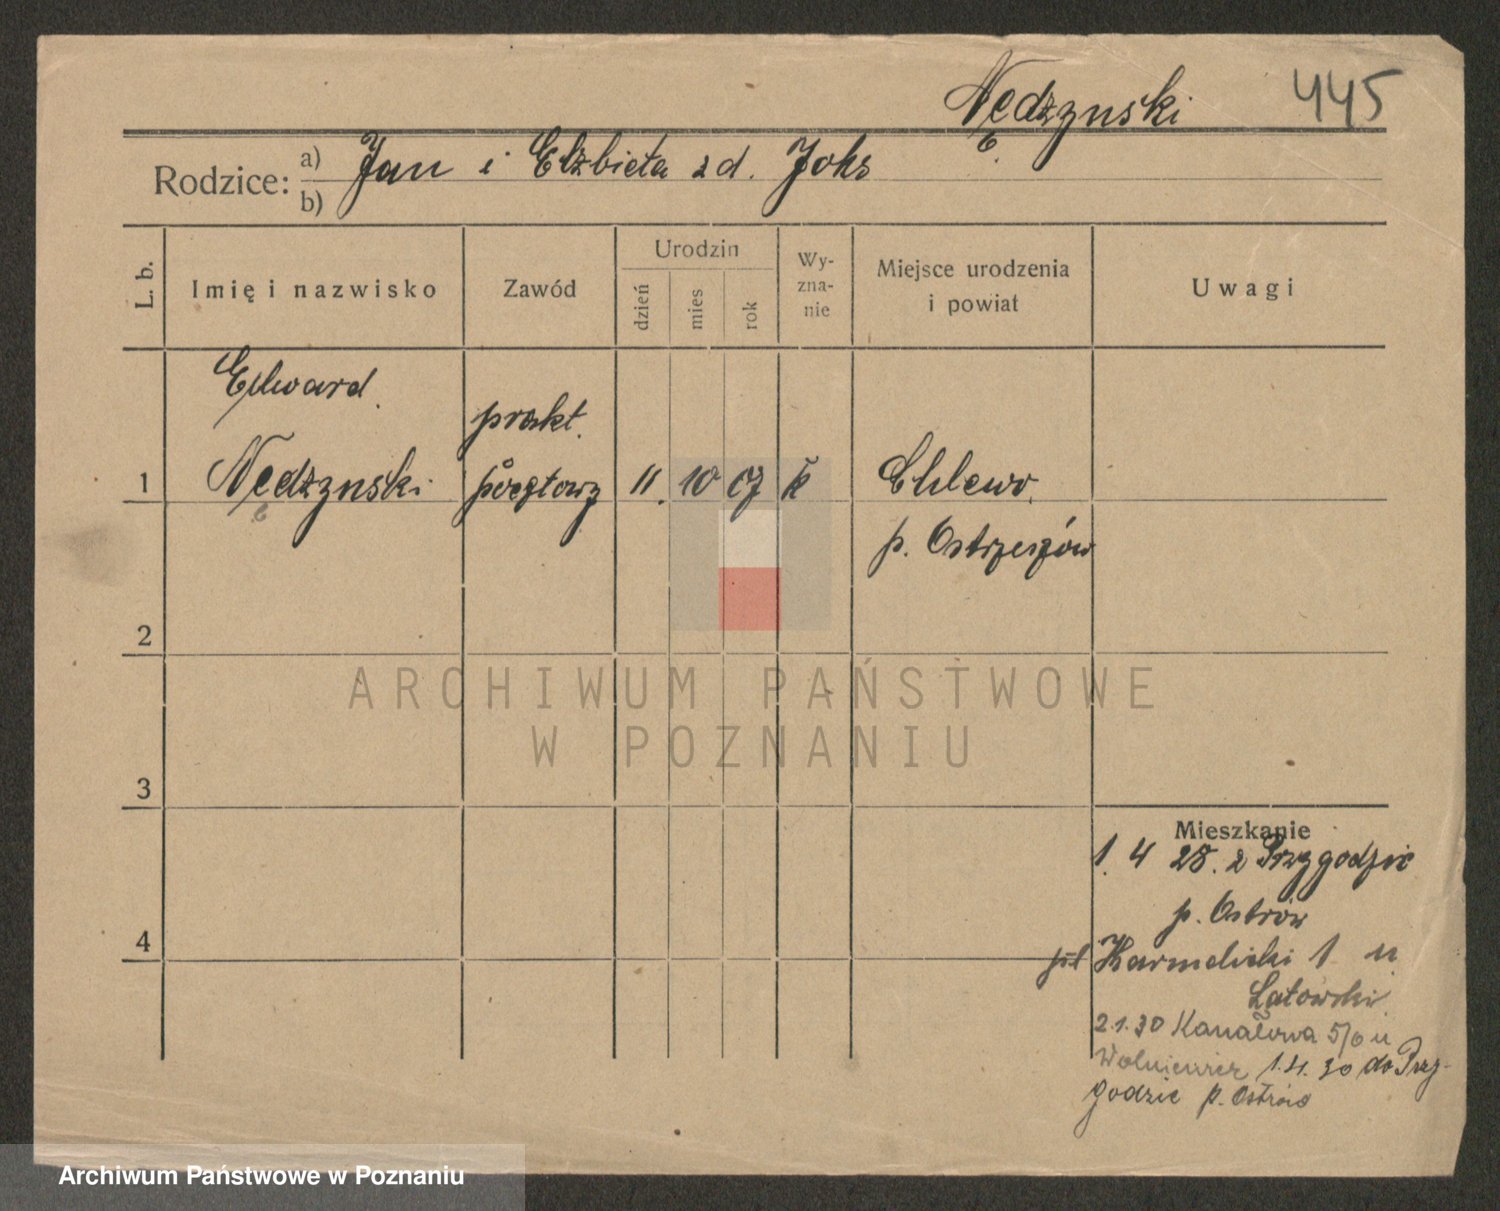 Nędzynski 445
Rodzice: a) Jan i Elżbieta z d. Joks
b)
L. b. Imię i nazwisko Zawód Urodzin dzień mies rok Wy-zna-nie Miejsce urodzenia i powiat Uwagi
Edward
prakt.
1 Nędzynski pocztowy 11. 10 07 k Chlewo
p. Ostrzeszów
2
ARCHIWUM PAŃSTWOWE
W POZNANIU
3
Mieszkanie
1. 4 28. z Przygodzic
p. Ostrów
4
pl Karmelicki 1 u
Latowski
2.1.30 Kanałowa 5/6 u
Wolniewicz 1.4.30 do Przy-
godzic p. Ostrów
Archiwum Państwowe w Poznaniu